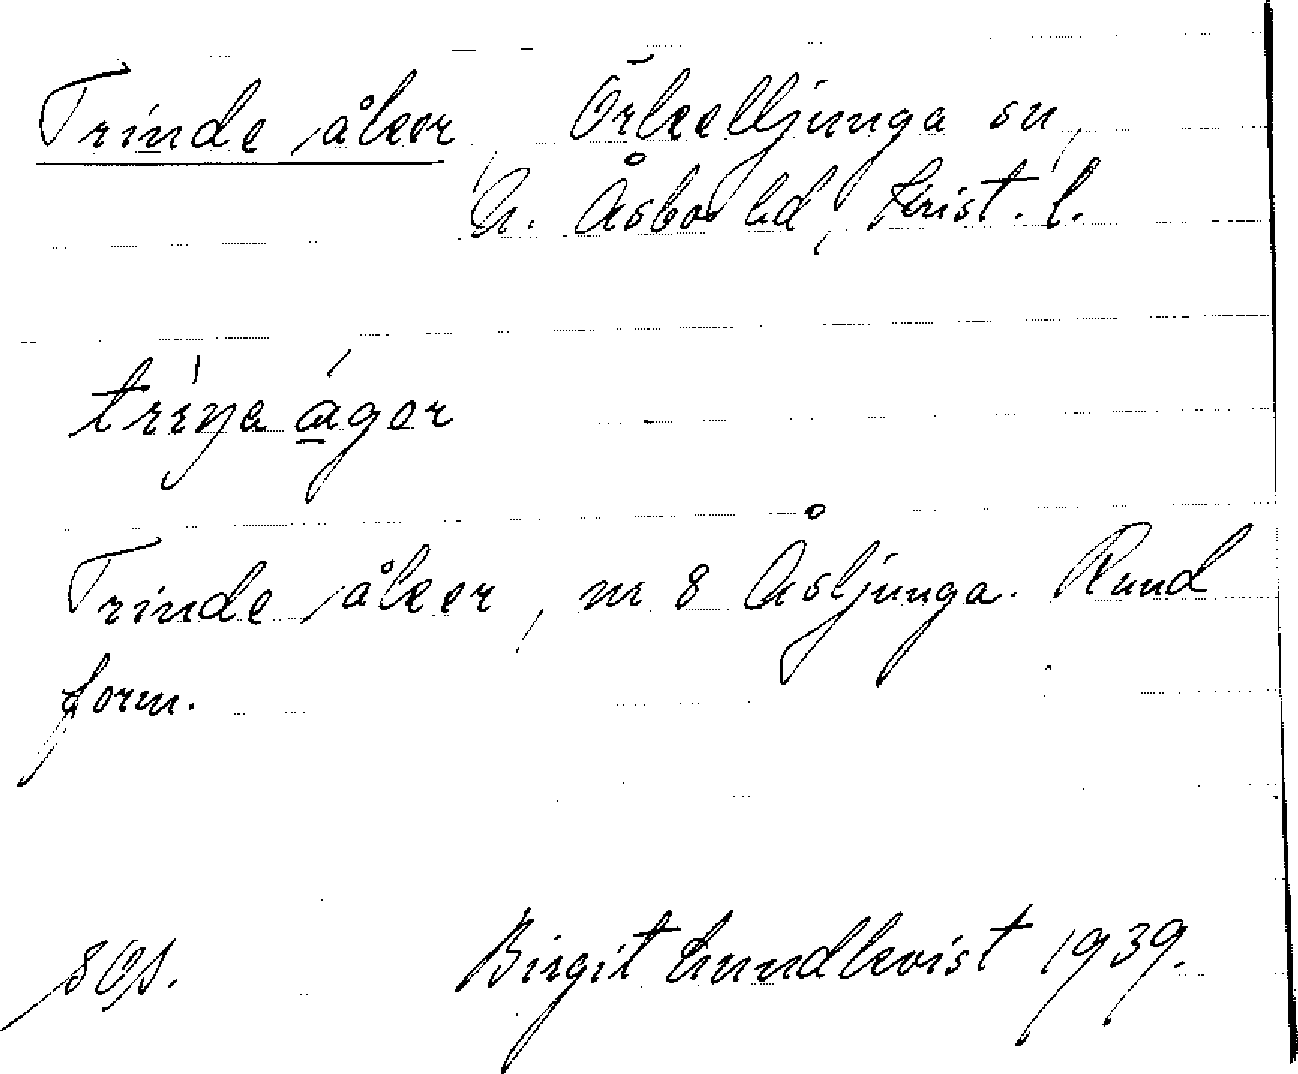 Trinde åker, Örkelljunga sn,
N. Åsbo hd, Krist. l.
trı́ŋa ágər
Trinde åker, nr 8 Åsljunga. Rund
form.
Birgit Lundkvist 1939.